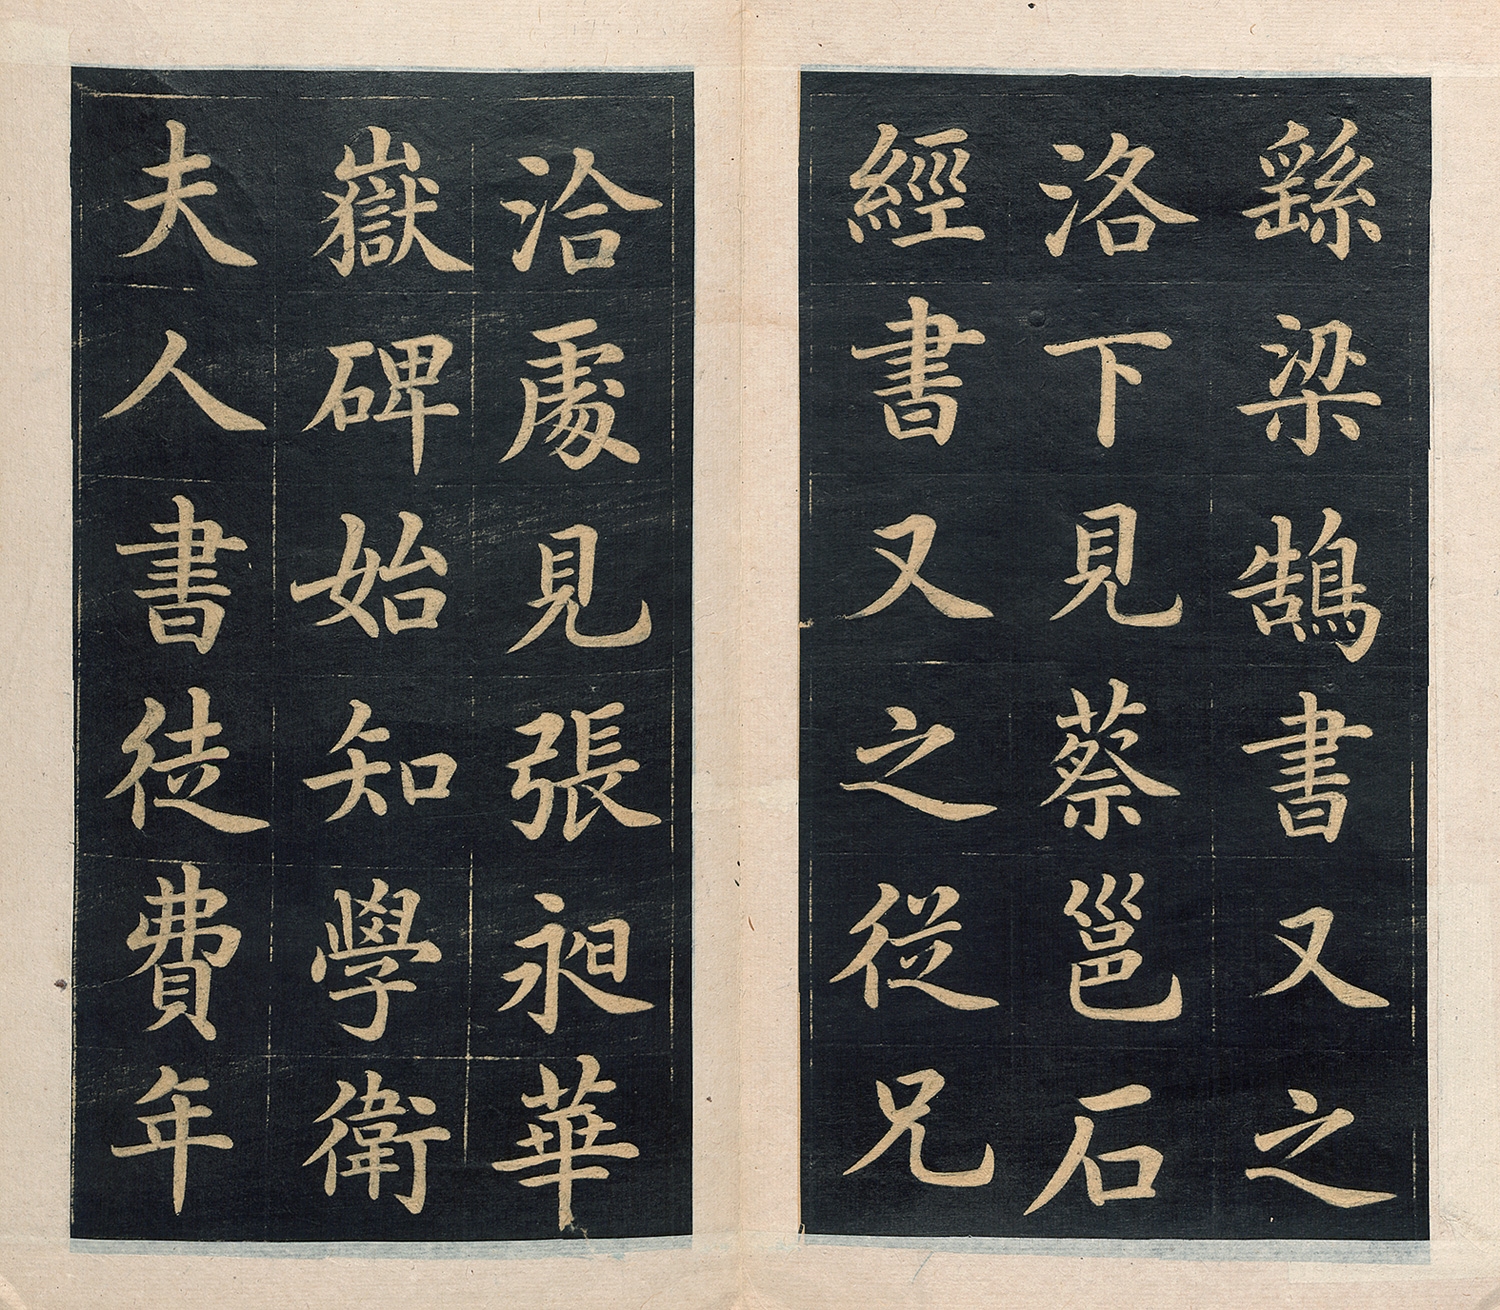 繇梁鵠書又之
洛下見蔡邕石
經書又之從兄
洽處見張昶華
嶽碑始知學衛
夫人書徒費年